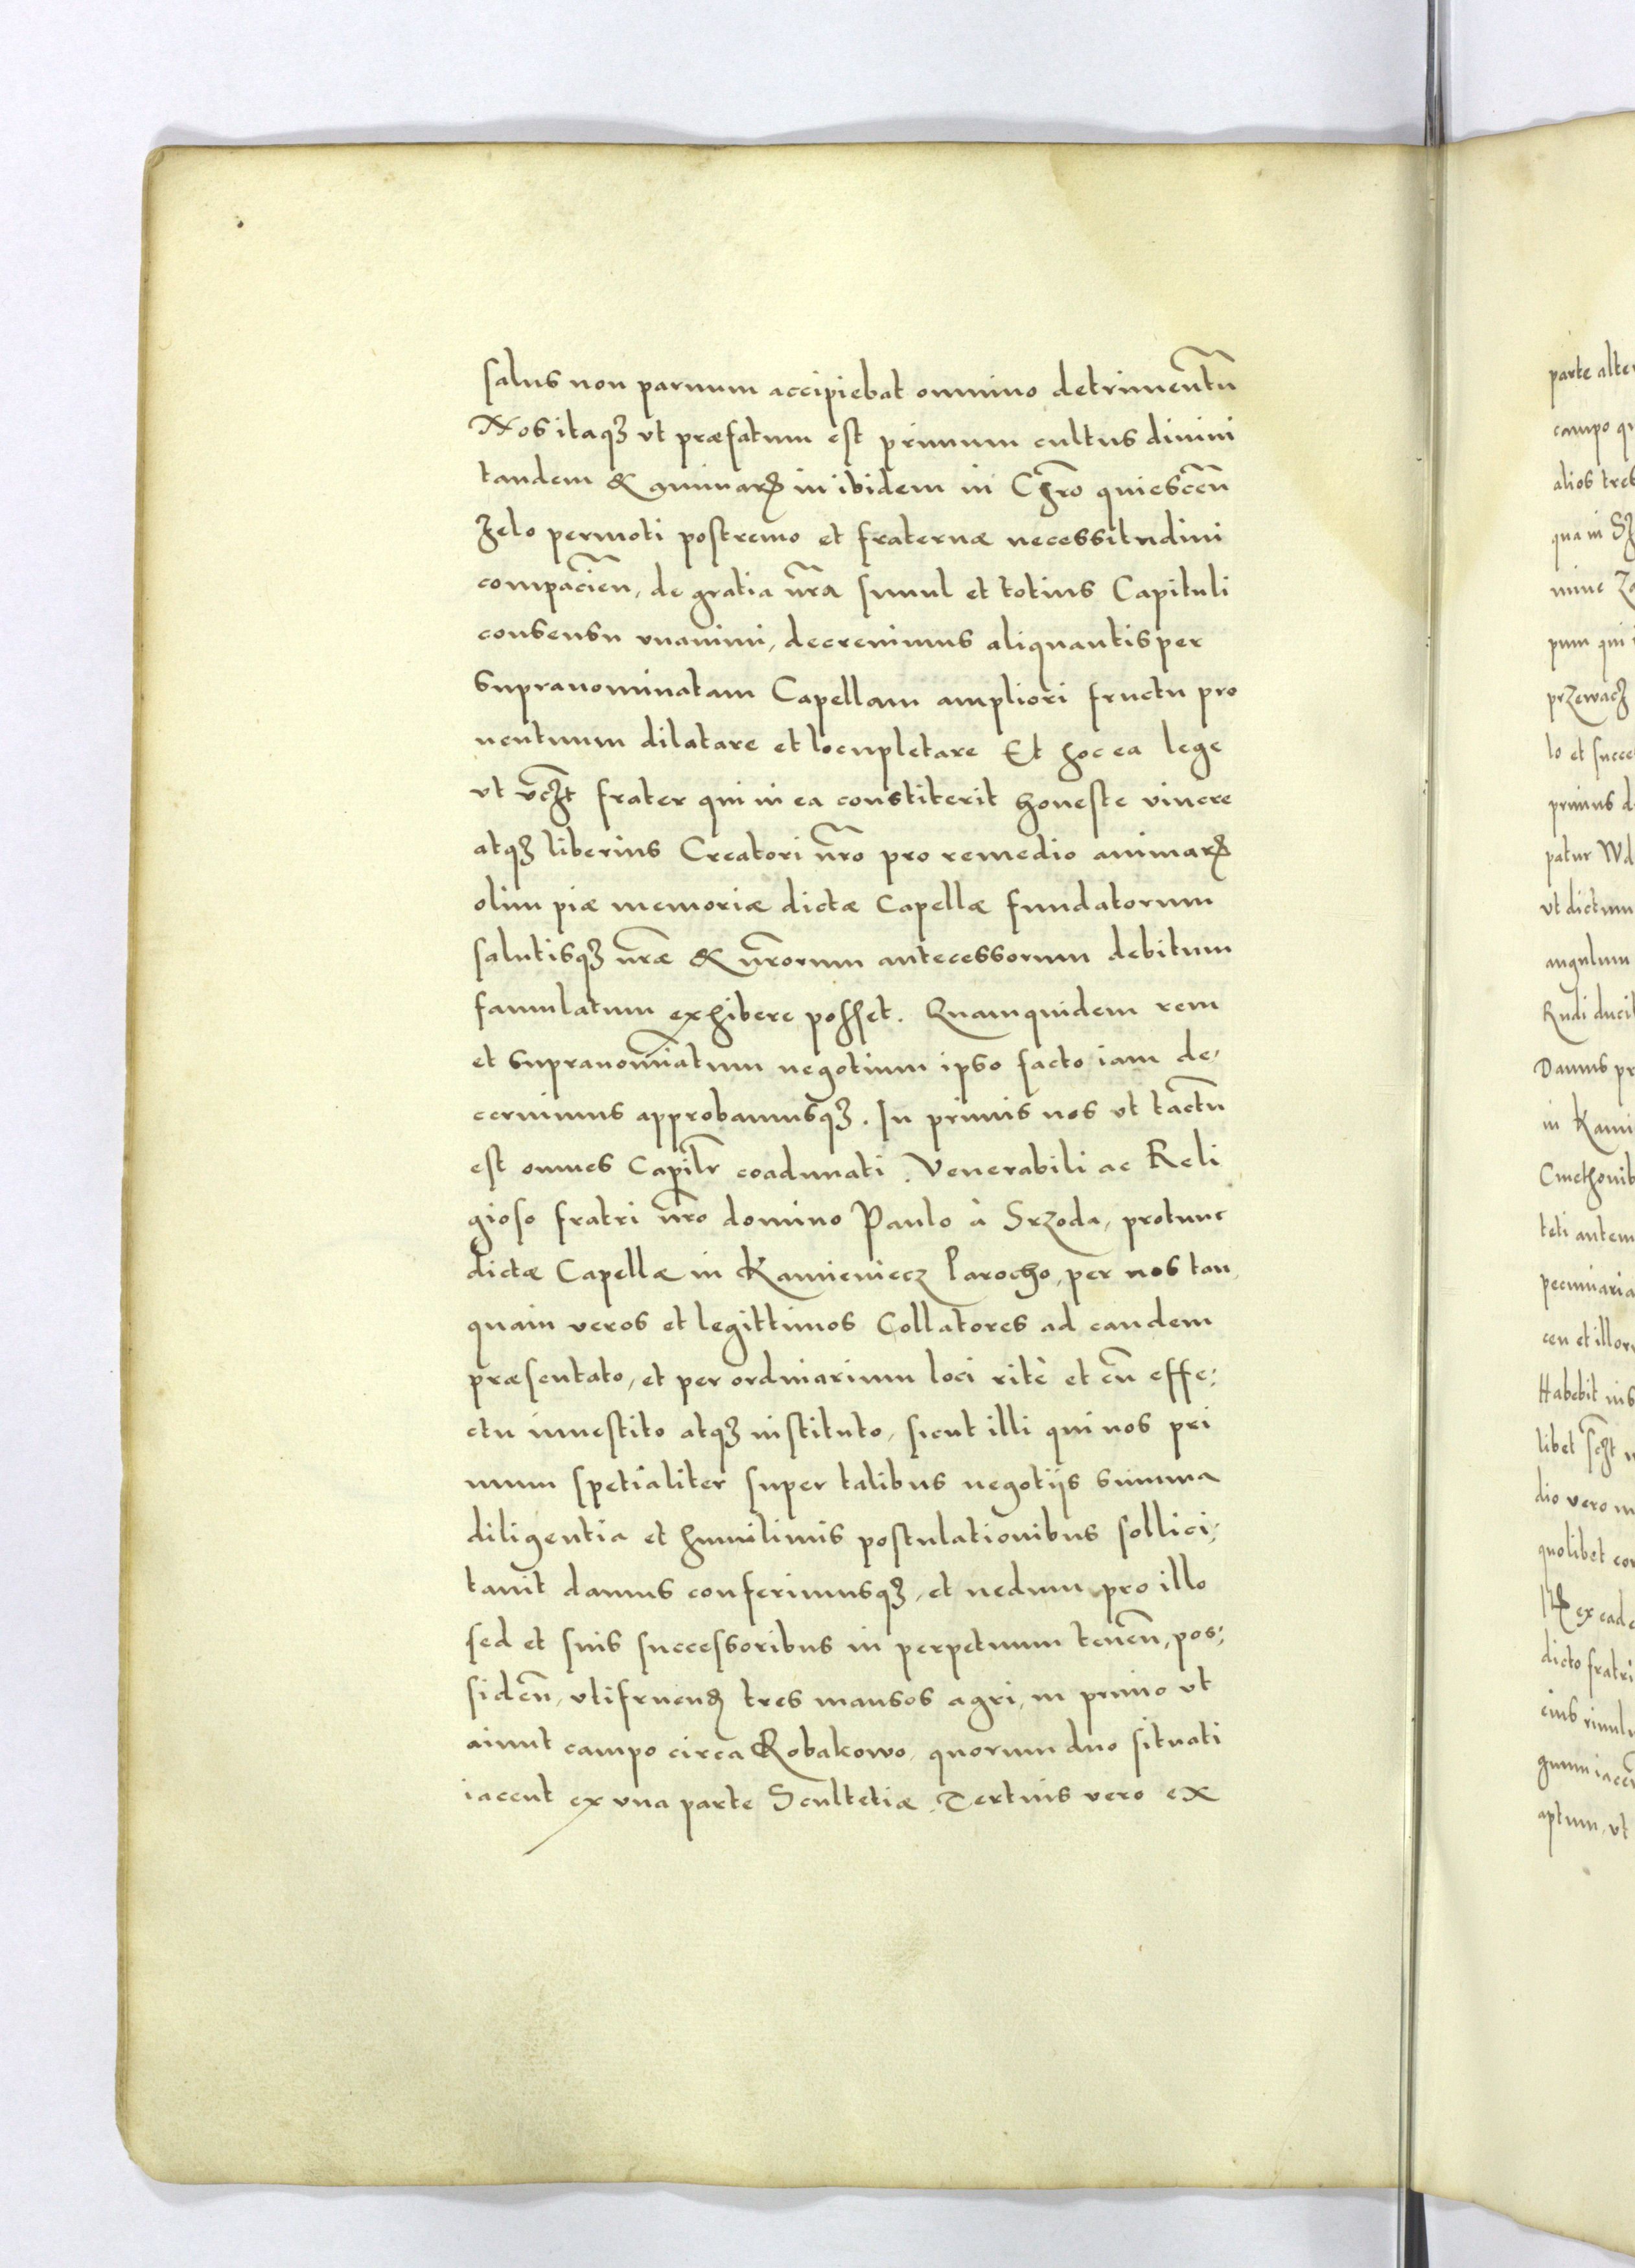 salus non paruum accipiebat omnino detrimentũ
Nos itaqꝫ vt præfatum est primum cultus diuini
tandem & animarꝝ in ibidem in Chr̃o quiescen̄
zelo permoti postremo et fraternæ necessitudini
compacien̄, de gratia nr̃a simul et totius Capituli
consensu vnanimi, decreuimus aliquantisper
supranominatam Capellam ampliori fructu pro
uentuum dilatare et locupletare Et hoc ea lege
vt frater qui in ea constiterit honeste viuere
atqꝫ liberius Creatori nr̃o pro remedio animarꝝ
olim piæ memoriæ dictæ Capellæ fundatorum
salutisqꝫ nr̃æ & nr̃orum antecessorum debitum
famulatum exhibere posset. Quamquidem rem
et supranomĩatum negotium ipso facto iam de,
cernimus approbamusqꝫ. In primis nos vt tactũ
est omnes Capitlr̃ coadunati. Venerabili ac Reli
gioso fratri nr̃o domino Paulo à Srzoda, protunc
dictæ Capellæ in Kamieniecz Parocho, per nos tan,
quam veros et legittimos Collatores ad eandem
præsentato, et per ordinarium loci ritè et cũ effe:
ctu inuestito atqꝫ instituto, sicut illi qui nos pri
mum spetialiter super talibus negotijs summa
diligentia et humilimis postulationibus sollici,
tauit damus conferimusqꝫ, et nedum pro illo
sed et suis successoribus in perpetuum tenen̄, pos:
siden̄, vtifruenꝺ tres mansos agri, in primo vt
aiunt campo circa Robakowo, quorum duo situati
iacent ex vna parte Scultetiæ. Tertius vero ex
parte alte
campo qu
alios tres
qua in
pum qui
lo et succe
primus d
patur Wd
vt dictum
angulum
Rudi ducit
Damus pr
in Kami
Cmethonib
teti antem
pecuniaria
ceu et illor
Habebit
libet
dio vero
quolibet con
ex ead
dicto fratri
eius riuul
aptum, vt